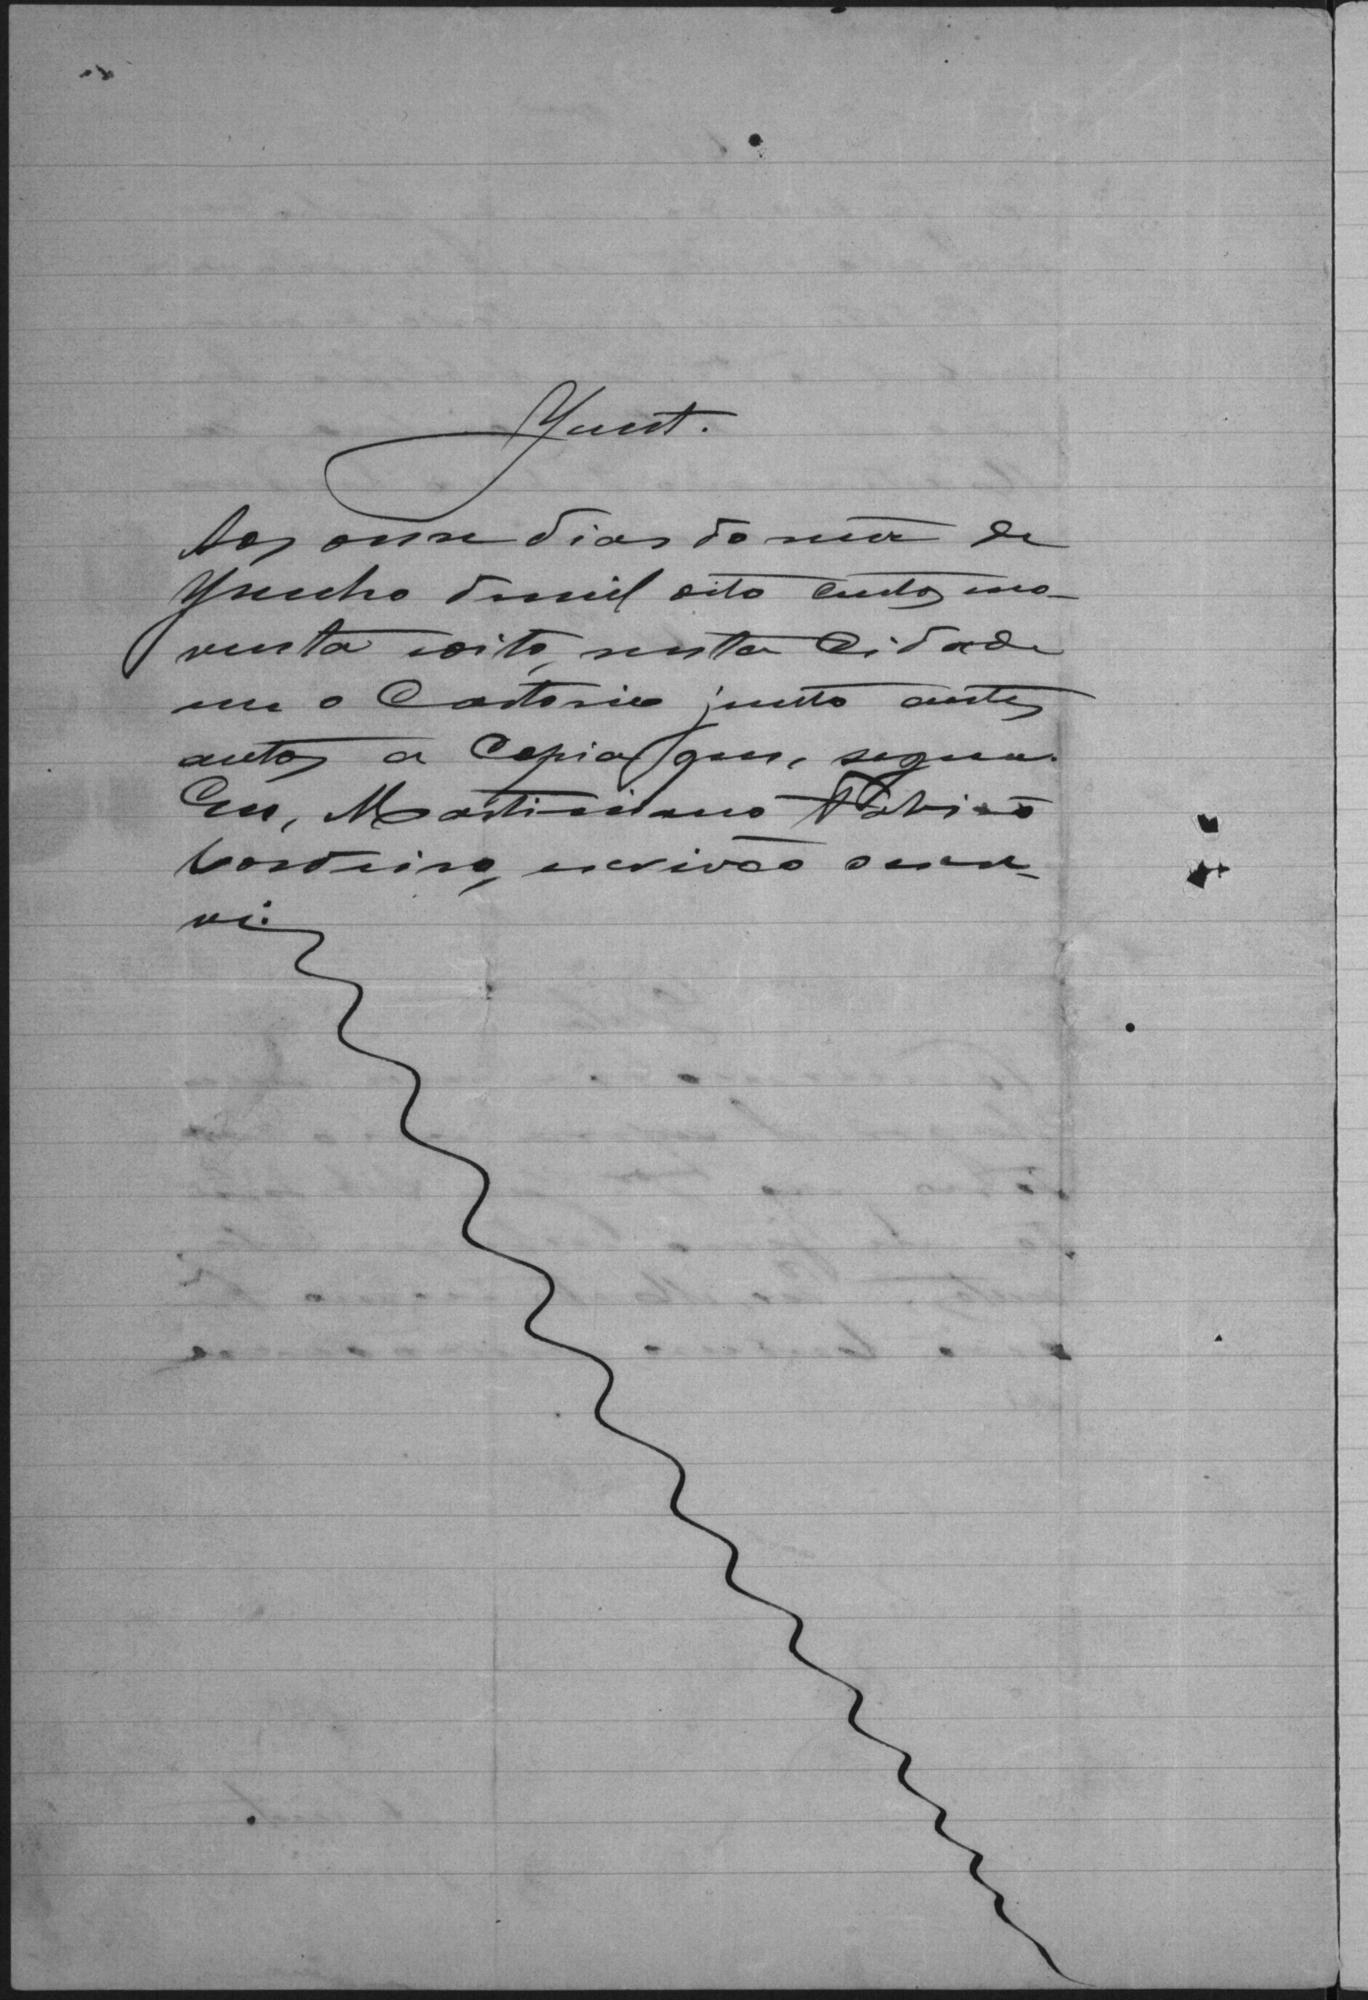 Junt.
Aos onze dias do mez de
Junho de mil oito centos no-
venta e oito, nesta Cidade
em o Cartorio junto a estes
autos a Copia que, segue.
Eu, Martiniano
Cordeiro, escrivão o escre-
vi.